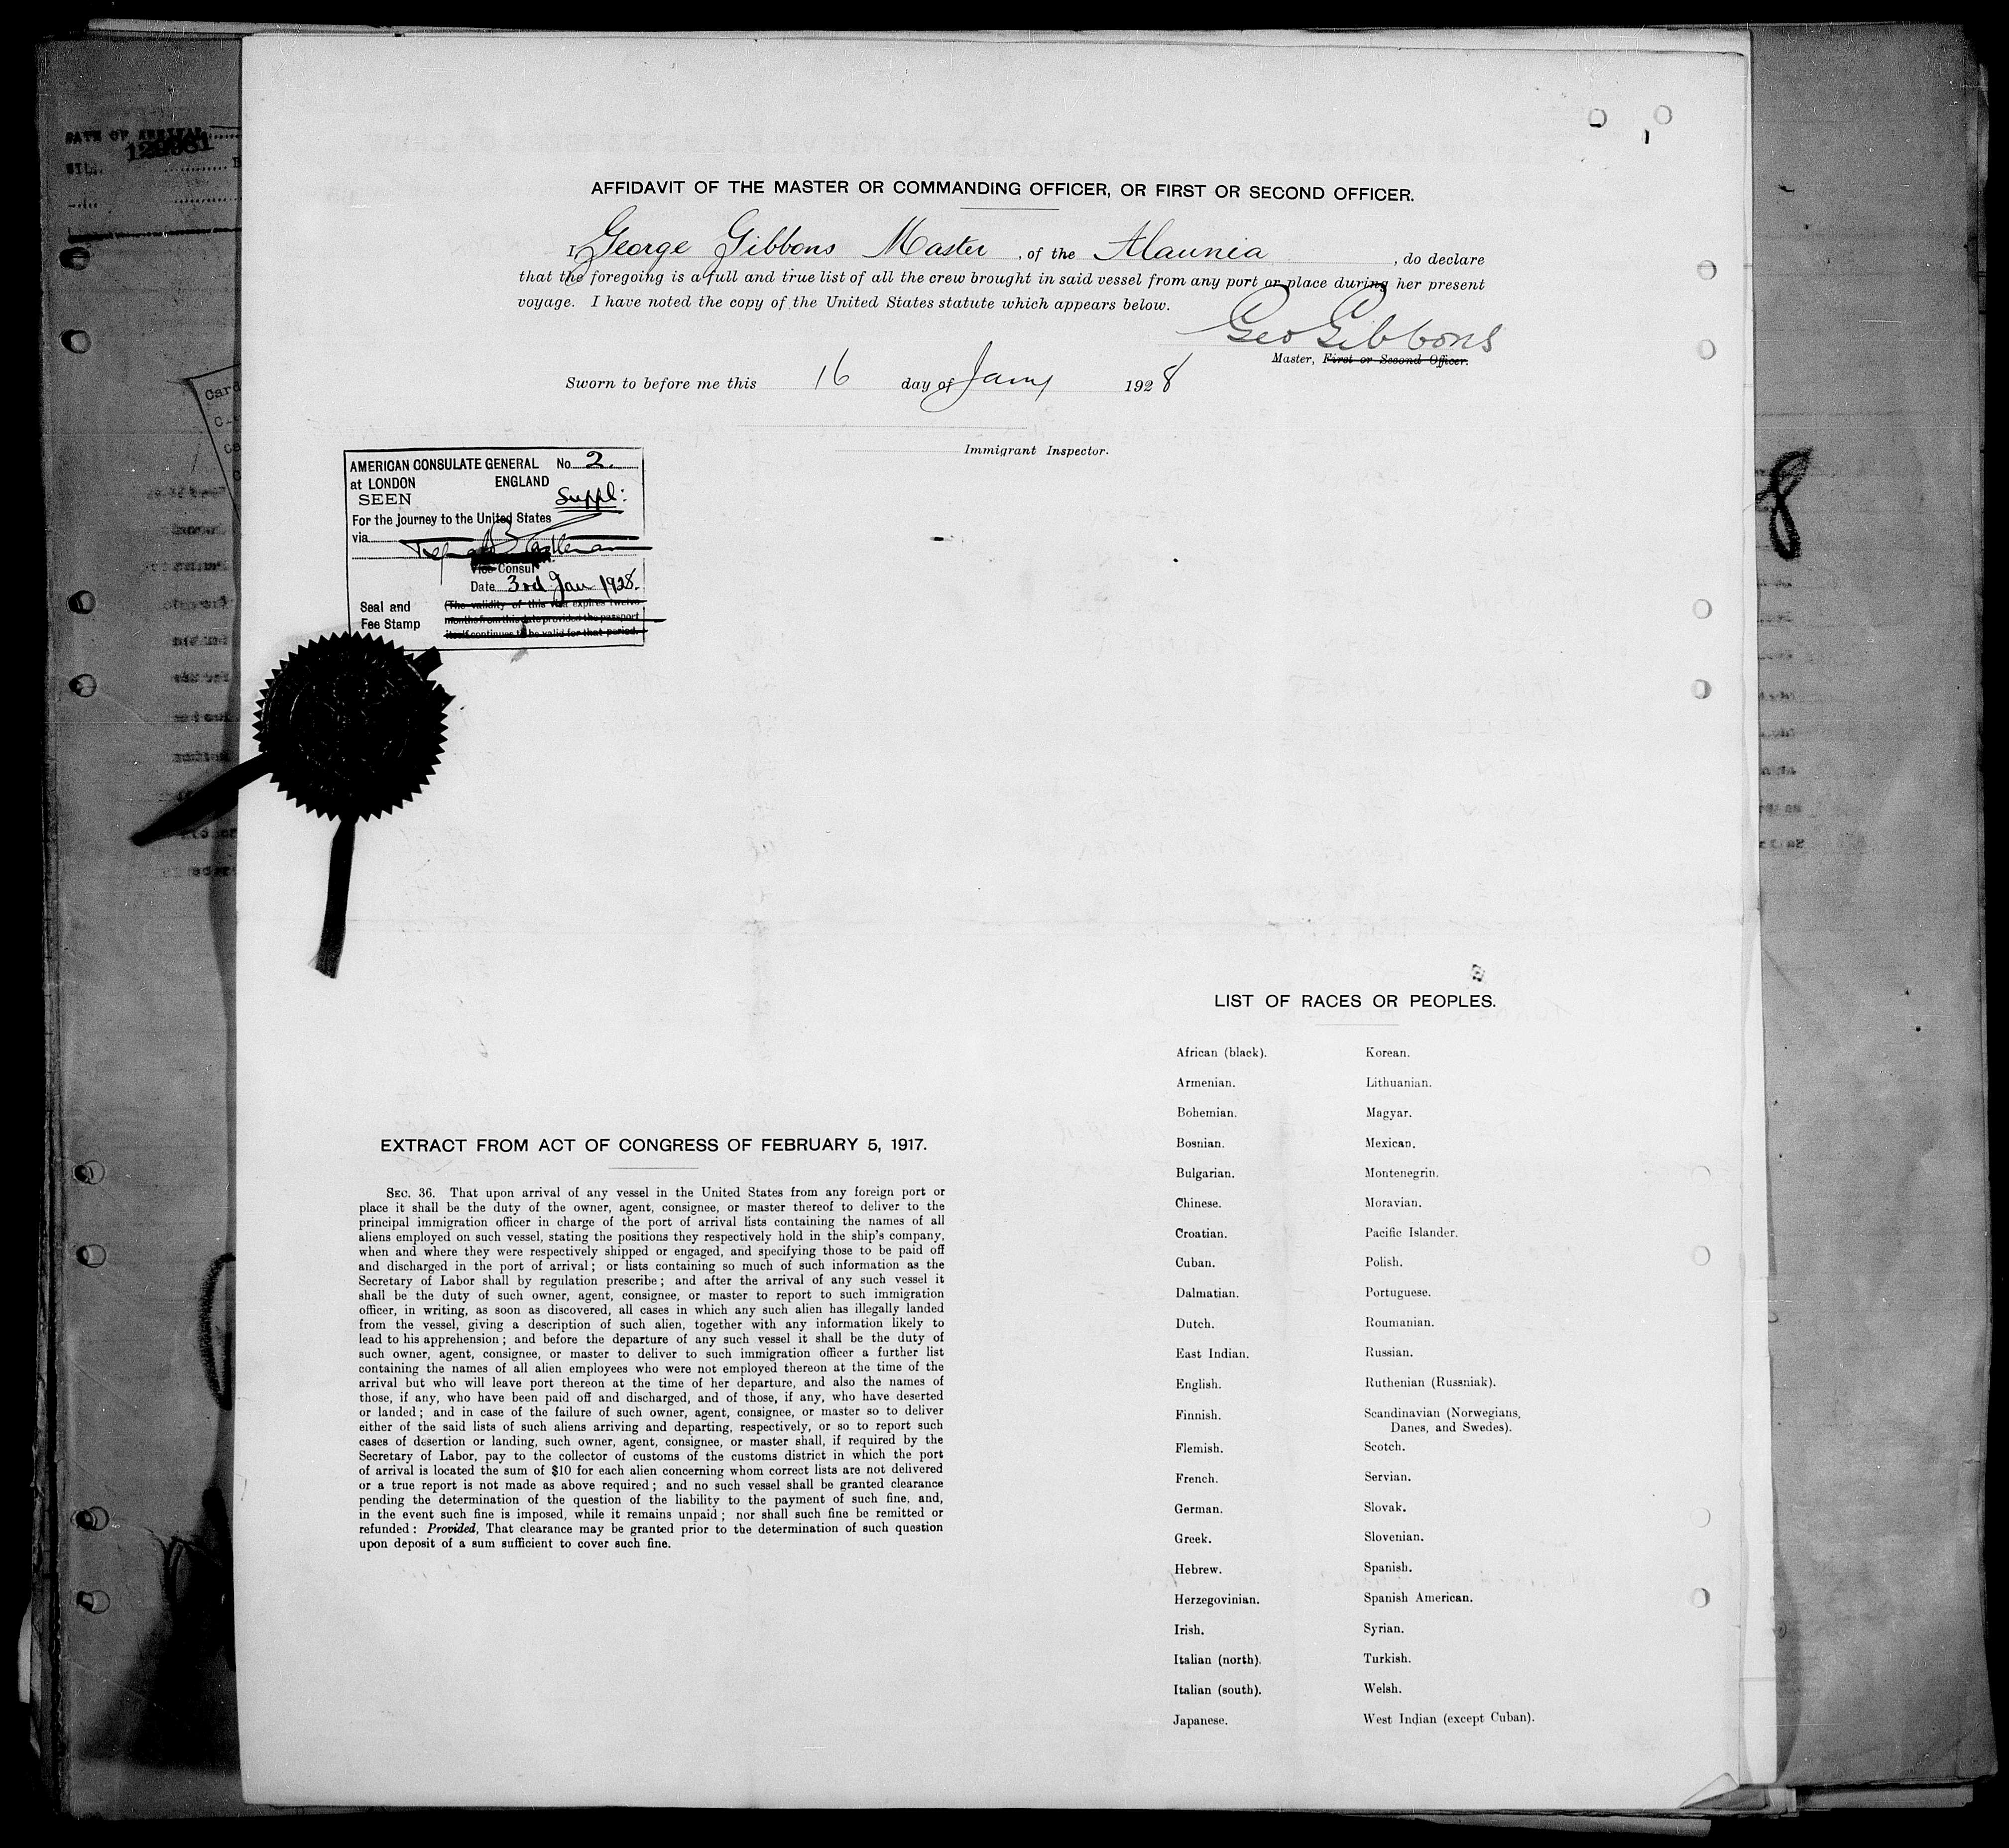 DATE OF ARRIVAL
129981
AFFIDAVIT OF THE MASTER OR COMMANDING OFFICER, OR FIRST OR SECOND OFFICER.
I, George Gibbons Master, of the Alaunia, do declare
that the foregoing is a full and true list of all the crew brought in said vessel from any port or place during her present
voyage. I have noted the copy of the United States statute which appears below.
Geo Gibbons
Master, First or Second Officer.
Sworn to before me this 16 day of Jany 1928
Immigrant Inspector.
AMERICAN CONSULATE GENERAL No. 2.
at LONDON ENGLAND
SEEN Suppl:
For the journey to the United States
via
Vice Consul
Date 3rd Jan 1928.
Seal and
Fee Stamp
(The validity of this visa expires twelve
months from this date provided the passport
itself continues to be valid for that period.
8
LIST OF RACES OR PEOPLES.
African (black). Korean.
Armenian. Lithuanian.
Bohemian. Magyar.
Bosnian. Mexican.
Bulgarian. Montenegrin.
Chinese. Moravian.
Croatian. Pacific Islander.
Cuban. Polish.
Dalmatian. Portuguese.
Dutch. Roumanian.
East Indian. Russian.
English. Ruthenian (Russniak).
Finnish. Scandinavian (Norwegians,
Danes, and Swedes).
Flemish. Scotch.
French. Servian.
German. Slovak.
Greek. Slovenian.
Hebrew. Spanish.
Herzegovinian. Spanish American.
Irish. Syrian.
Italian (north). Turkish.
Italian (south). Welsh.
Japanese. West Indian (except Cuban).
EXTRACT FROM ACT OF CONGRESS OF FEBRUARY 5, 1917.
SEC. 36. That upon arrival of any vessel in the United States from any foreign port or
place it shall be the duty of the owner, agent, consignee, or master thereof to deliver to the
principal immigration officer in charge of the port of arrival lists containing the names of all
aliens employed on such vessel, stating the positions they respectively hold in the ship's company,
when and where they were respectively shipped or engaged, and specifying those to be paid off
and discharged in the port of arrival; or lists containing so much of such information as the
Secretary of Labor shall by regulation prescribe; and after the arrival of any such vessel it
shall be the duty of such owner, agent, consignee, or master to report to such immigration
officer, in writing, as soon as discovered, all cases in which any such alien has illegally landed
from the vessel, giving a description of such alien, together with any information likely to
lead to his apprehension; and before the departure of any such vessel it shall be the duty of
such owner, agent, consignee, or master to deliver to such immigration officer a further list
containing the names of all alien employees who were not employed thereon at the time of the
arrival but who will leave port thereon at the time of her departure, and also the names of
those, if any, who have been paid off and discharged, and of those, if any, who have deserted
or landed; and in case of the failure of such owner, agent, consignee, or master so to deliver
either of the said lists of such aliens arriving and departing, respectively, or so to report such
cases of desertion or landing, such owner, agent, consignee, or master shall, if required by the
Secretary of Labor, pay to the collector of customs of the customs district in which the port
of arrival is located the sum of $10 for each alien concerning whom correct lists are not delivered
or a true report is not made as above required; and no such vessel shall be granted clearance
pending the determination of the question of the liability to the payment of such fine, and,
in the event such fine is imposed, while it remains unpaid; nor shall such fine be remitted or
refunded: Provided, That clearance may be granted prior to the determination of such question
upon deposit of a sum sufficient to cover such fine.